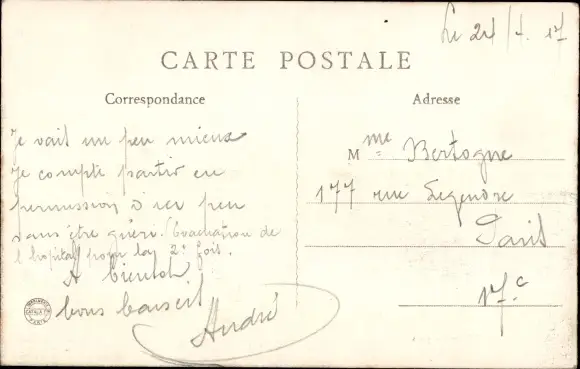 Le 24/4.17
CARTE POSTALE
Correspondance
Adresse
Je vait un peu mieux
Je compte partir en
permission d'ici peu
sans être guéri. (Evacuation de
l'hopital pour la 2e fois.
A bientot
bons baisers
André
Mme Bertogne
177 rue Legendre
Paris
17e